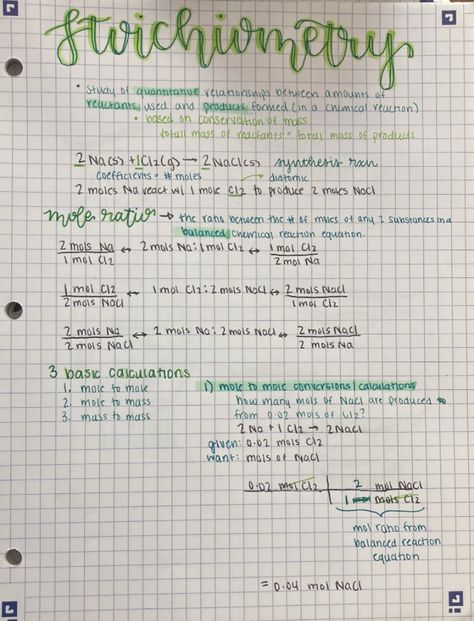 Stoichiometry
• Study of quantitative relationships between amounts of
reactants used and products formed (in a chemical reaction)
• based on conservation of mass
total mass of reactants = total mass of products
2Na(s) + 1Cl2(g) → 2NaCl(s) synthesis rxn
coefficients = # moles → diatomic
2 moles Na react w/ 1 mole Cl2 to produce 2 moles NaCl
mole ratios → the ratio between the # of moles of any 2 substances in a
balanced chemical reaction equation.
2 mols Na / 1 mol Cl2 ↔ 2 mols Na : 1 mol Cl2 ↔ 1 mol Cl2 / 2 mol Na
1 mol Cl2 / 2 mols NaCl ↔ 1 mol Cl2 : 2 mols NaCl ↔ 2 mols NaCl / 1 mol Cl2
2 mols Na / 2 mols NaCl ↔ 2 mols Na : 2 mols NaCl ↔ 2 mols NaCl / 2 mols Na
3 basic calculations
1. mole to mole
2. mole to mass
3. mass to mass
1) mole to mole conversions/calculations
how many mols of NaCl are produced
from 0.02 mols of Cl2?
2 Na + 1 Cl2 → 2NaCl
given: 0.02 mols Cl2
want: mols of NaCl
0.02 mol Cl2 | 2 mol NaCl
1 mols Cl2
mol ratio from
balanced reaction
equation
= 0.04 mol NaCl